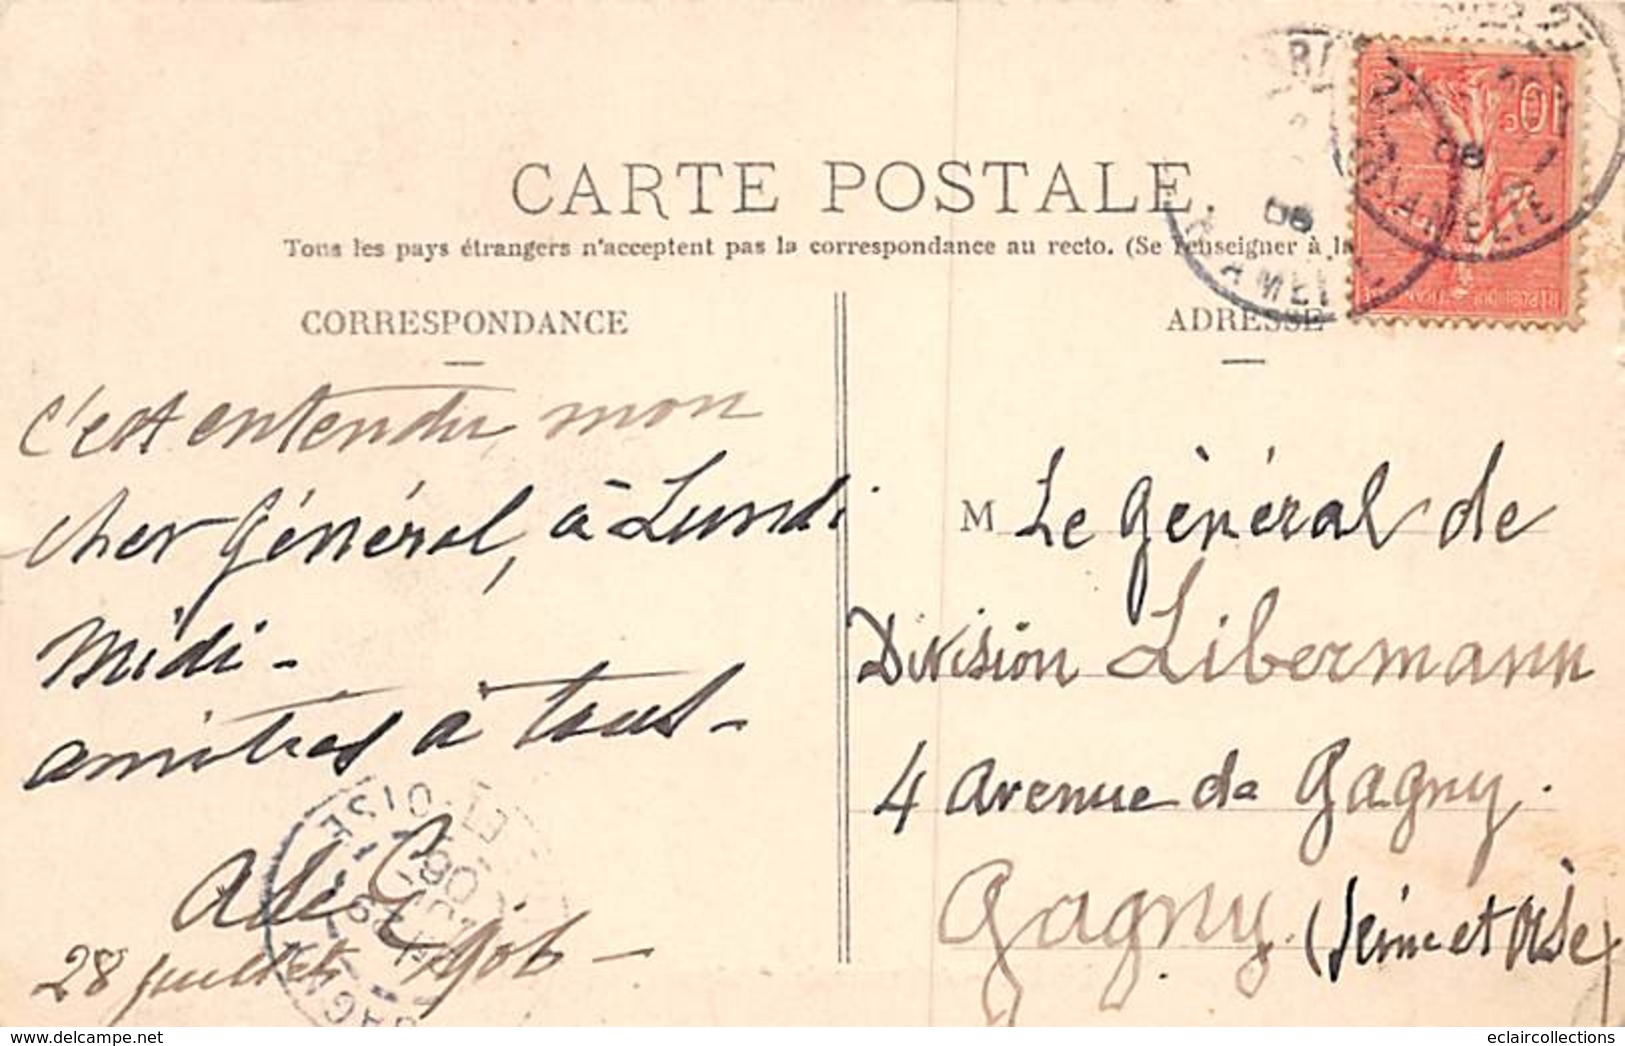 CARTE POSTALE.
Tous les pays étrangers n'acceptent pas la correspondance au recto. (Se renseigner à la
CORRESPONDANCE
c'est entendu, mon
cher Général, à Lundi
Midi -
amitiés à tous -
28 juillet 1906 -
ADRESSE
M Le Général de
Division Libermann
4 Avenue de Gagny.
Gagny. (Seine et Oise)
10c
AMELIE
OISE
delcampe.net
eclaircollections